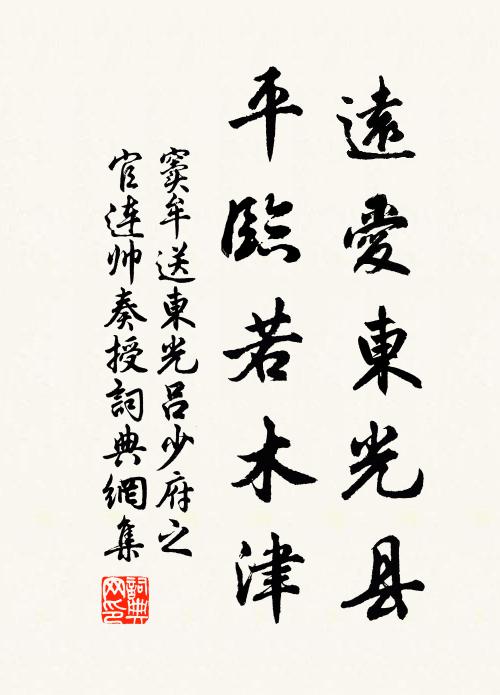 遠愛東光县
平臨若木津
窦牟送東光吕少府之
官連帅奏授詞典網集
詞典网印